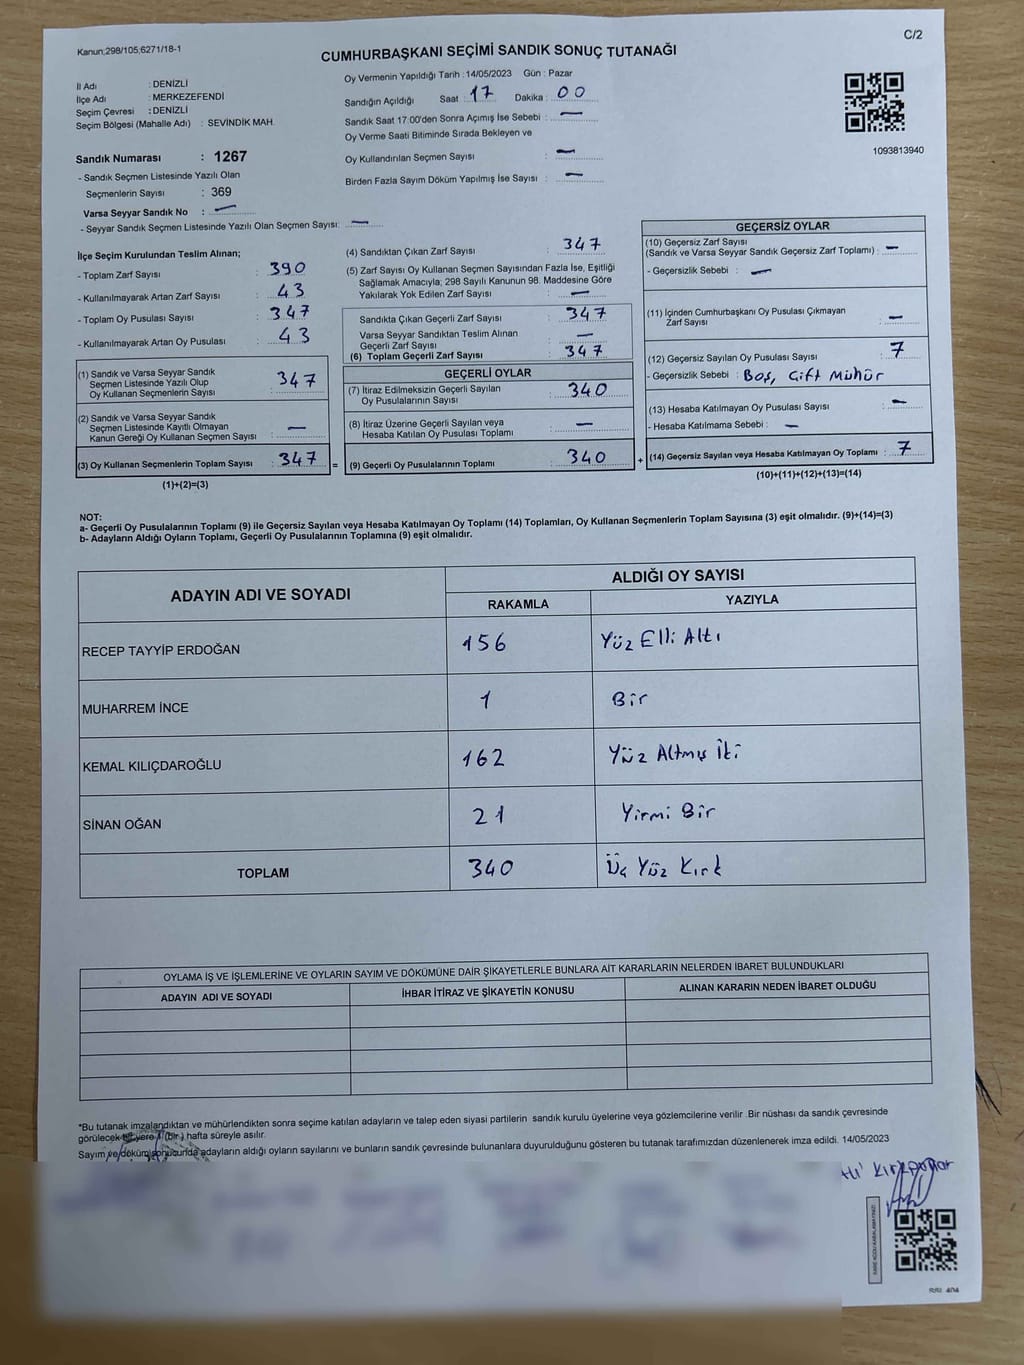 Kanun;298/105;6271/18-1
C/2
CUMHURBAŞKANI SEÇİMİ SANDIK SONUÇ TUTANAĞI
İl Adı : DENİZLİ
İlçe Adı : MERKEZEFENDİ
Seçim Çevresi : DENİZLİ
Seçim Bölgesi (Mahalle Adı) : SEVİNDİK MAH.
Oy Vermenin Yapıldığı Tarih : 14/05/2023 Gün : Pazar
Sandığın Açıldığı Saat : 17 Dakika : 00
Sandık Saat 17:00'den Sonra Açımış İse Sebebi : —
Oy Verme Saati Bitiminde Sırada Bekleyen ve
Oy Kullandırılan Seçmen Sayısı : —
Birden Fazla Sayım Döküm Yapılmış İse Sayısı : —
1093813940
Sandık Numarası : 1267
- Sandık Seçmen Listesinde Yazılı Olan
Seçmenlerin Sayısı : 369
Varsa Seyyar Sandık No : —
- Seyyar Sandık Seçmen Listesinde Yazılı Olan Seçmen Sayısı: —
İlçe Seçim Kurulundan Teslim Alınan;
- Toplam Zarf Sayısı : 390
- Kullanılmayarak Artan Zarf Sayısı : 43
- Toplam Oy Pusulası Sayısı : 347
- Kullanılmayarak Artan Oy Pusulası : 43
(1) Sandık ve Varsa Seyyar Sandık
Seçmen Listesinde Yazılı Olup
Oy Kullanan Seçmenlerin Sayısı : 347
(2) Sandık ve Varsa Seyyar Sandık
Seçmen Listesinde Kayıtlı Olmayan
Kanun Gereği Oy Kullanan Seçmen Sayısı : —
(3) Oy Kullanan Seçmenlerin Toplam Sayısı : 347
(1)+(2)=(3)
(4) Sandıktan Çıkan Zarf Sayısı : 347
(5) Zarf Sayısı Oy Kullanan Seçmen Sayısından Fazla İse, Eşitliği
Sağlamak Amacıyla; 298 Sayılı Kanunun 98. Maddesine Göre
Yakılarak Yok Edilen Zarf Sayısı : —
Sandıkta Çıkan Geçerli Zarf Sayısı : 347
Varsa Seyyar Sandıktan Teslim Alınan
Geçerli Zarf Sayısı : —
(6) Toplam Geçerli Zarf Sayısı : 347
GEÇERLİ OYLAR
(7) İtiraz Edilmeksizin Geçerli Sayılan
Oy Pusulalarının Sayısı : 340
(8) İtiraz Üzerine Geçerli Sayılan veya
Hesaba Katılan Oy Pusulası Toplamı : —
= (9) Geçerli Oy Pusulalarının Toplamı : 340
GEÇERSİZ OYLAR
(10) Geçersiz Zarf Sayısı
(Sandık ve Varsa Seyyar Sandık Geçersiz Zarf Toplamı) : —
- Geçersizlik Sebebi : —
(11) İçinden Cumhurbaşkanı Oy Pusulası Çıkmayan
Zarf Sayısı : —
(12) Geçersiz Sayılan Oy Pusulası Sayısı : 7
- Geçersizlik Sebebi : Boş, Çift Mühür
(13) Hesaba Katılmayan Oy Pusulası Sayısı : —
- Hesaba Katılmama Sebebi : —
+ (14) Geçersiz Sayılan veya Hesaba Katılmayan Oy Toplamı : 7
(10)+(11)+(12)+(13)=(14)
NOT:
a- Geçerli Oy Pusulalarının Toplamı (9) ile Geçersiz Sayılan veya Hesaba Katılmayan Oy Toplamı (14) Toplamları, Oy Kullanan Seçmenlerin Toplam Sayısına (3) eşit olmalıdır. (9)+(14)=(3)
b- Adayların Aldığı Oyların Toplamı, Geçerli Oy Pusulalarının Toplamına (9) eşit olmalıdır.
ADAYIN ADI VE SOYADI ALDIĞI OY SAYISI
RAKAMLA YAZIYLA
RECEP TAYYİP ERDOĞAN 156 Yüz Elli Altı
MUHARREM İNCE 1 Bir
KEMAL KILIÇDAROĞLU 162 Yüz Altmış İki
SİNAN OĞAN 21 Yirmi Bir
TOPLAM 340 Üç Yüz Kırk
OYLAMA İŞ VE İŞLEMLERİNE VE OYLARIN SAYIM VE DÖKÜMÜNE DAİR ŞİKAYETLERLE BUNLARA AİT KARARLARIN NELERDEN İBARET BULUNDUKLARI
ADAYIN ADI VE SOYADI İHBAR İTİRAZ VE ŞİKAYETİN KONUSU ALINAN KARARIN NEDEN İBARET OLDUĞU
*Bu tutanak imzalandıktan ve mühürlendikten sonra seçime katılan adayların ve talep eden siyasi partilerin sandık kurulu üyelerine veya gözlemcilerine verilir .Bir nüshası da sandık çevresinde
görülecek bir yere 1 (bir ) hafta süreyle asılır.
Sayım ve döküm sonucunda adayların aldığı oyların sayılarını ve bunların sandık çevresinde bulunanlara duyurulduğunu gösteren bu tutanak tarafımızdan düzenlenerek imza edildi. 14/05/2023